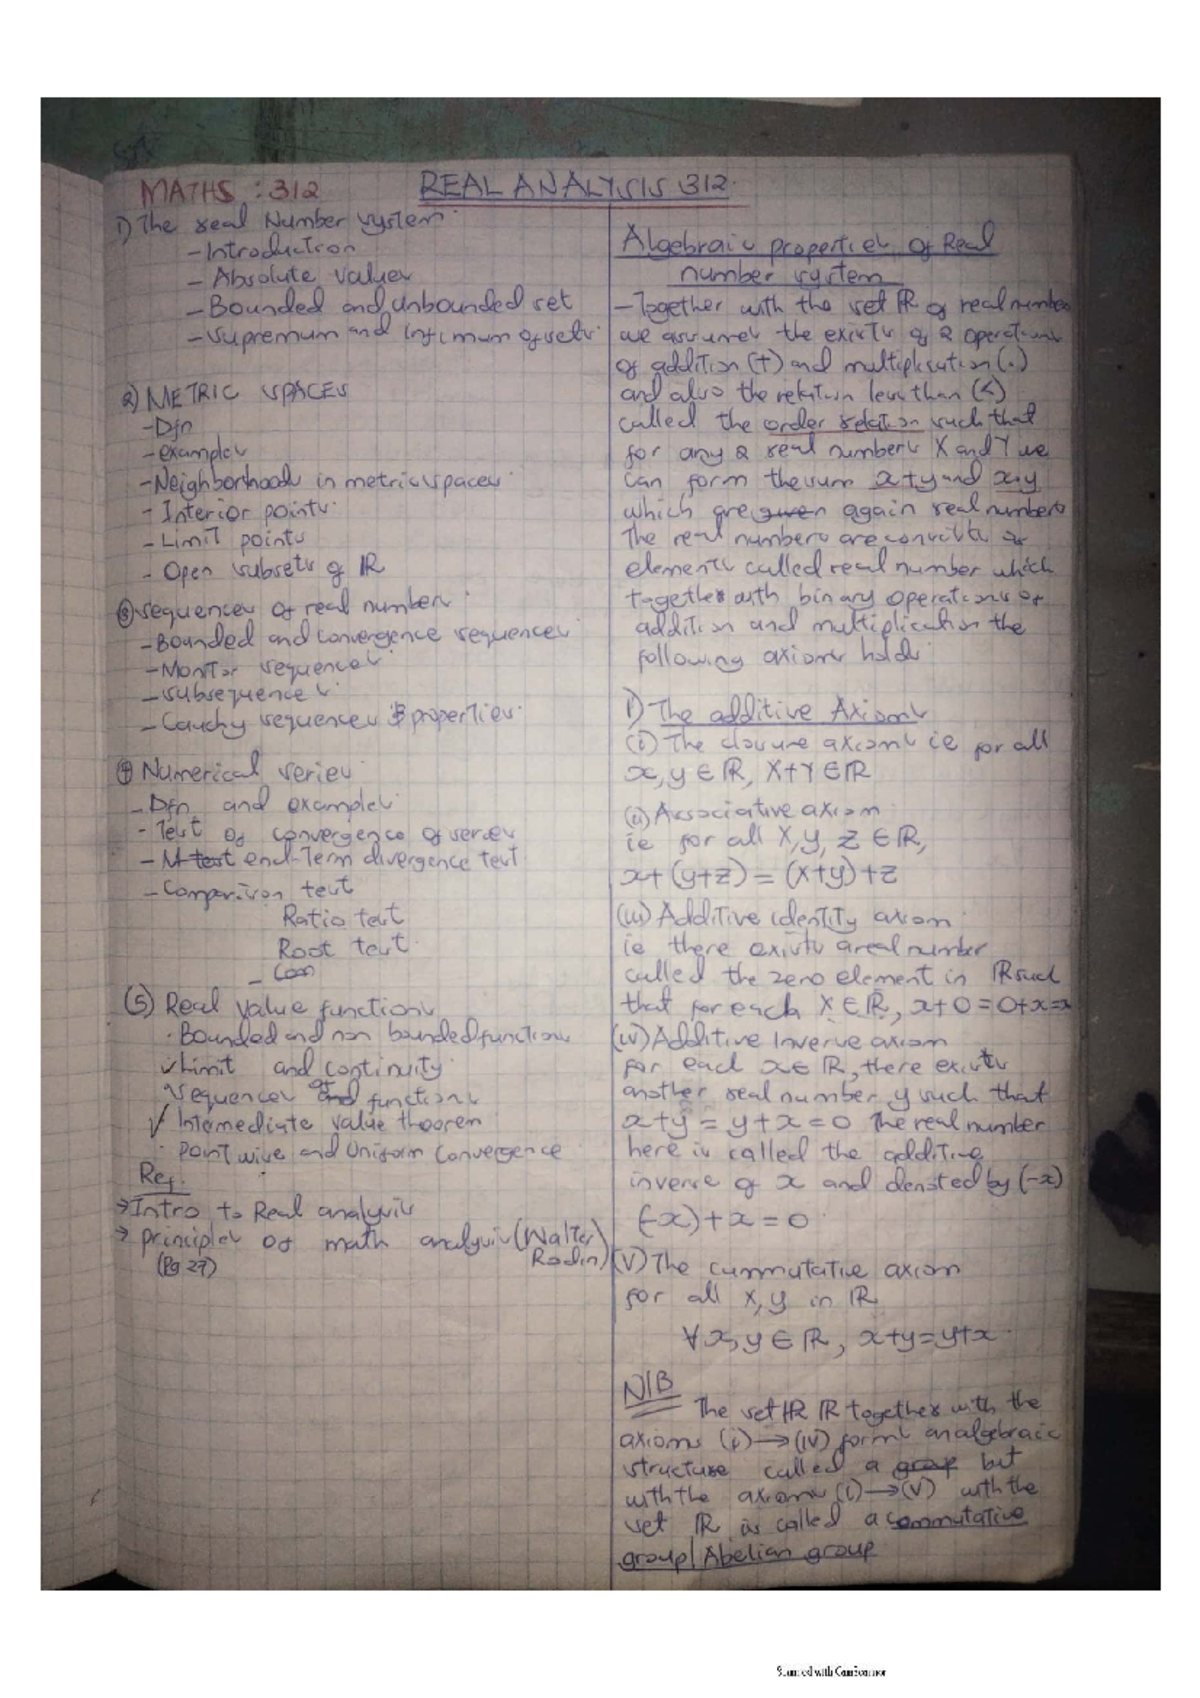 MATHS : 312 REAL ANALYSIS 312.
1) The real Number system
- Introduction
- Absolute values
- Bounded and unbounded set
- supremum and infimum of sets
2) METRIC SPACES
- Dfn
- examples
- Neighborhoods in metric spaces
- Interior points
- Limit points
- Open subsets of ℝ
③ sequences of real numbers
- Bounded and convergence sequences
- Monitor sequences
- subsequences
- Cauchy sequences & properties
④ Numerical series
- Dfn and examples
- Test of convergence of series
- M-test end-Term divergence test
- Comparison test
Ratio test
Root test
- Com
(5) Real value functions
· Bounded and non bounded functions
✓ Limit and continuity
sequences of and functions
✓ Intemediate value theorem
· Point wise and Uniform Convergence
Ref:
→ Intro to Real analysis
→ principles of math analysis (Walter Rodin)
(Pg 27)
Algebraic properties of Real
number system
- Together with the set ℝ of real numbers
we assumes the exists of 2 operations
of addition (+) and multiplication (.)
and also the relation less than (<)
called the order relation such that
for any 2 real numbers X and Y we
can form the sum x+y and x.y
which are given again real numbers
The real numbers are consists of
elements called real number which
together with binary operations of
addition and multiplication the
following axioms holds
1) The additive Axioms
(i) The closure axioms ie for all
x, y ∈ ℝ, X+Y ∈ ℝ
(ii) Associative axiom
ie for all X, y, z ∈ ℝ,
x+(y+z) = (x+y)+z
(iii) Additive identity axiom
ie there exists a real number
called the zero element in ℝ such
that for each X ∈ ℝ, x+0=0+x=x
(iv) Additive Inverse axiom
for each x ∈ ℝ, there exists
another real number y such that
x+y = y+x = 0 The real number
here is called the additive
inverse of x and denoted by (-x)
(-x)+x = 0
(V) The cummutative axiom
for all x, y in ℝ
∀ x, y ∈ ℝ, x+y=y+x
N/B
The set ℝ ℝ together with the
axioms (i)→(iv) forms an algebraic
structure called a group but
with the axioms (i)→(v) with the
set ℝ is called a commutative
group/Abelian group
Scanned with CamScanner